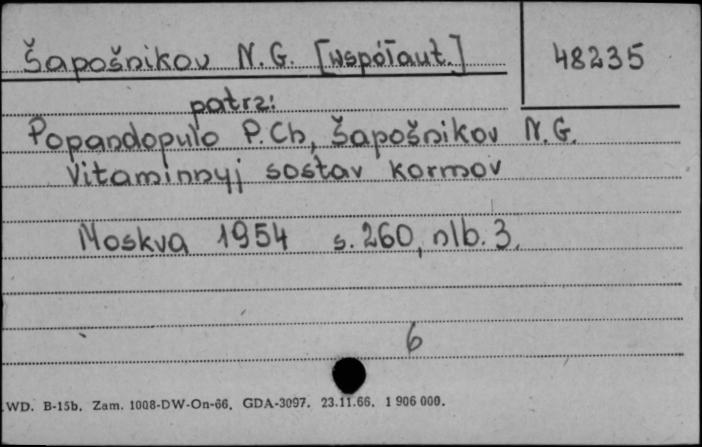 Šapošnikov N.G. [współaut.] 48235
patrz:
Popandopulo P.Ch, Šapošnikov N.G.
Vitaminnyj sostav kormov
Moskva 1954 s. 260, nlb. 3.
6
WD. B-15b. Zam. 1008-DW-On-66. GDA-3097. 23.11.66. 1 906 000.